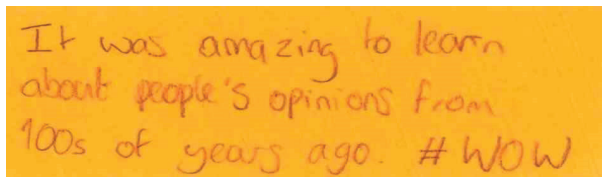 It was amazing to learn
about people's opinions from
100s of years ago. #WOW